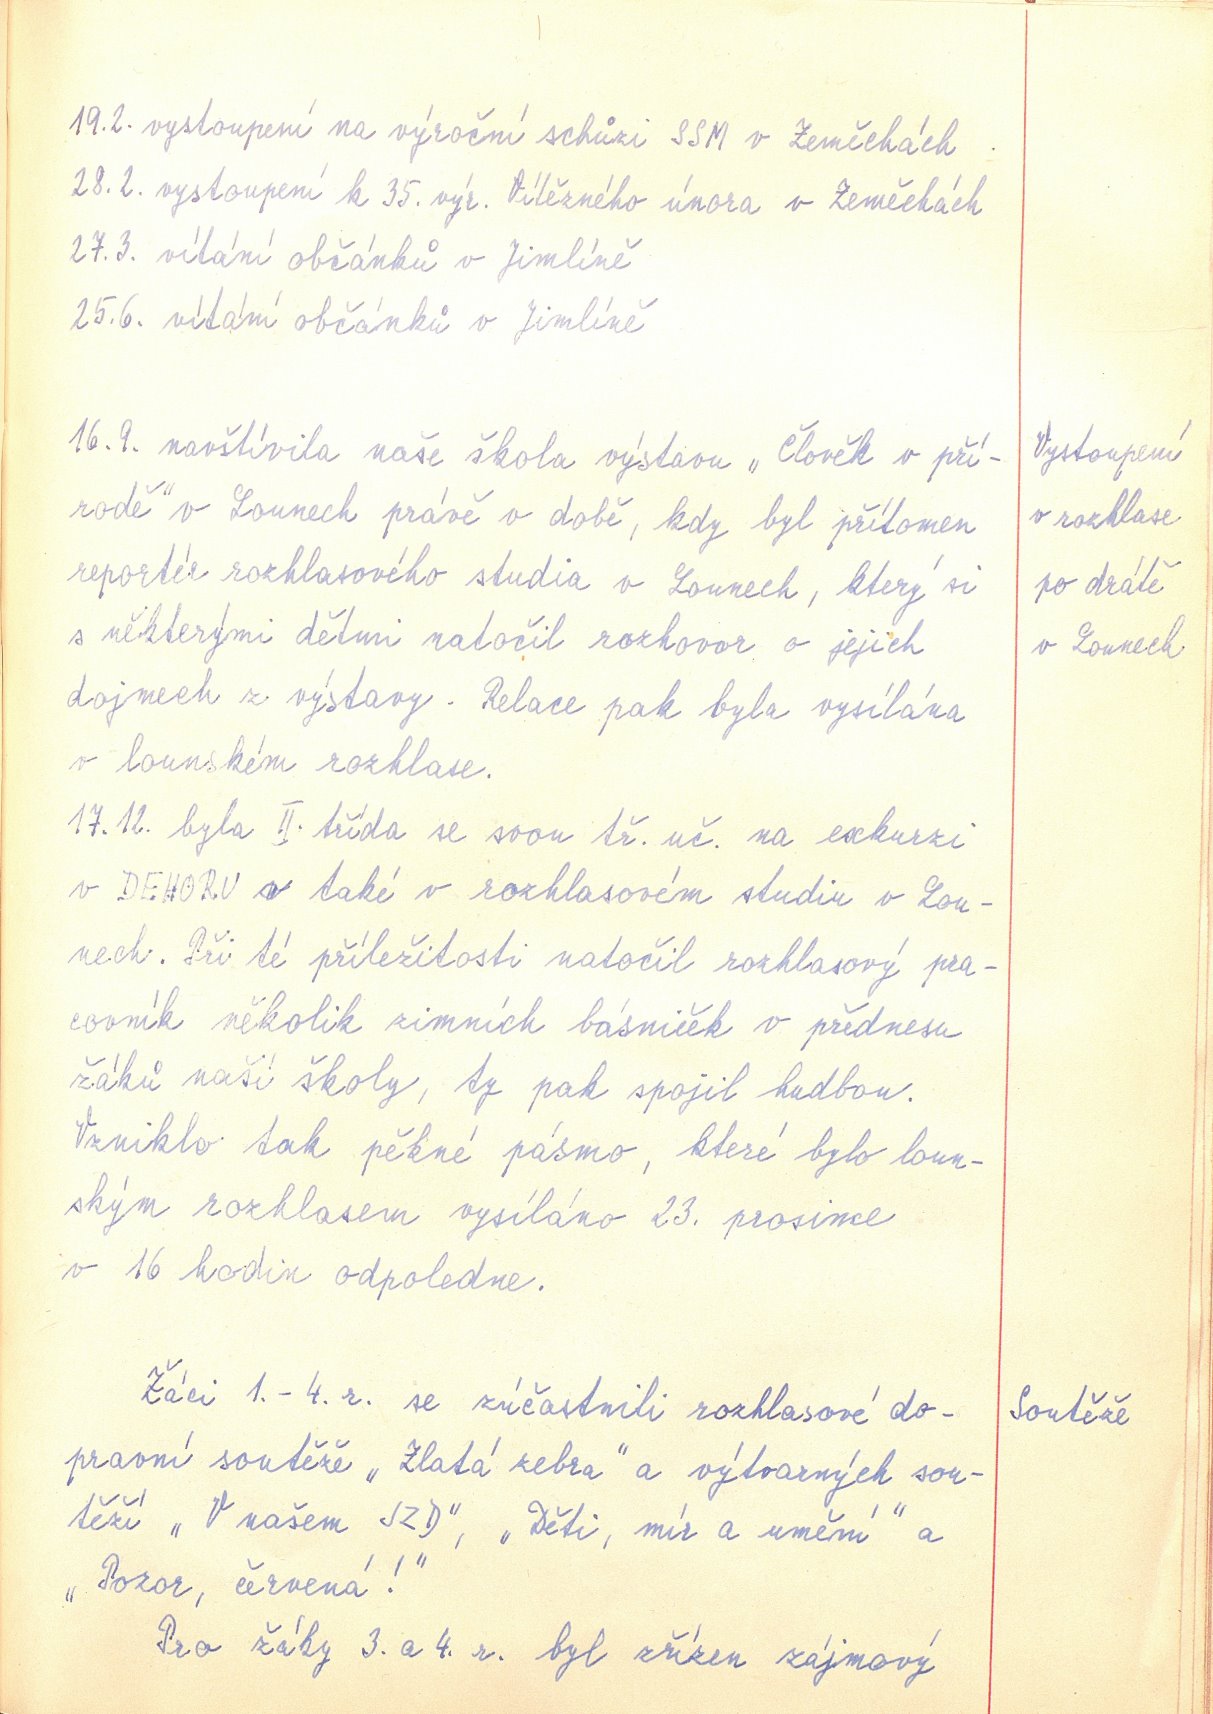 19.2. vystoupení na výroční schůzi SSM v Zeměchách
28.2. vystoupení k 35. výr. Vítězného února v Zeměchách
27.3. vítání občánků v Jimlíně
25.6. vítání občánků v Jimlíně
16.9. navštívila naše škola výstavu „Člověk v pří-
rodě" v Lounech právě v době, kdy byl přítomen
reportér rozhlasového studia v Lounech, který si
s některými dětmi natočil rozhovor o jejich
dojmech z výstavy. Relace pak byla vysílána
v lounském rozhlase.
Vystoupení
v rozhlase
po drátě
v Lounech
17.12. byla II. třída se svou tř. uč. na exkurzi
v DEHORU a také v rozhlasovém studiu v Lou-
nech. Při té příležitosti natočil rozhlasový pra-
covník několik zimních básniček v přednesu
žáků naší školy, ty pak spojil hudbou.
Vzniklo tak pěkné pásmo, které bylo loun-
ským rozhlasem vysíláno 23. prosince
v 16 hodin odpoledne.
Žáci 1.-4. r. se zúčastnili rozhlasové do-
pravní soutěže „Zlatá zebra" a výtvarných sou-
těží „V našem JZD", „Děti, mír a umění" a
„Pozor, červená!"
Soutěže
Pro žáky 3. a 4. r. byl zřízen zájmový